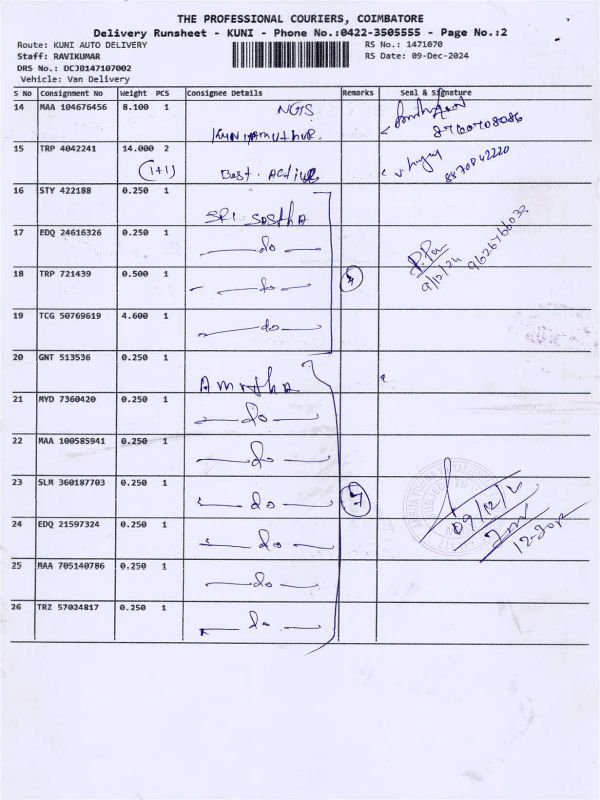 THE PROFESSIONAL COURIERS, COIMBATORE
Delivery Runsheet - KUNI - Phone No.:0422-3505555 - Page No.:2
Route: KUNI AUTO DELIVERY
RS No.: 1471070
Staff: RAVIKUMAR
RS Date: 09-Dec-2024
DRS No.: DCJB147107002
Vehicle: Van Delivery
S No Consignment No Weight PCS Consignee Details Remarks Seal & Signature
14 MAA 104676456 8.100 1 NGTS
Kuniyamuthur. 8760708086
15 TRP 4042241 14.000 2
(1+1) Best. Active 8870842220
16 STY 422188 0.250 1
SRI SASthA
17 EDQ 24616326 0.250 1 do 9626766033
9/12/24
18 TRP 721439 0.500 1 do 4
19 TCG 50769619 4.600 1 do
20 GNT 513536 0.250 1
Amrtha
21 MYD 7360420 0.250 1 do
22 MAA 100585941 0.250 1 do
23 SLM 360187703 0.250 1 do 7
09/12/2
24 EDQ 21597324 0.250 1 do
25 MAA 705140786 0.250 1 do
26 TRZ 57024817 0.250 1 do